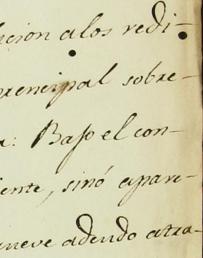 ncion a los redi-
principal sobre-
a: Bajo el con-
iente, sinó apare-
nueve adendo atra-